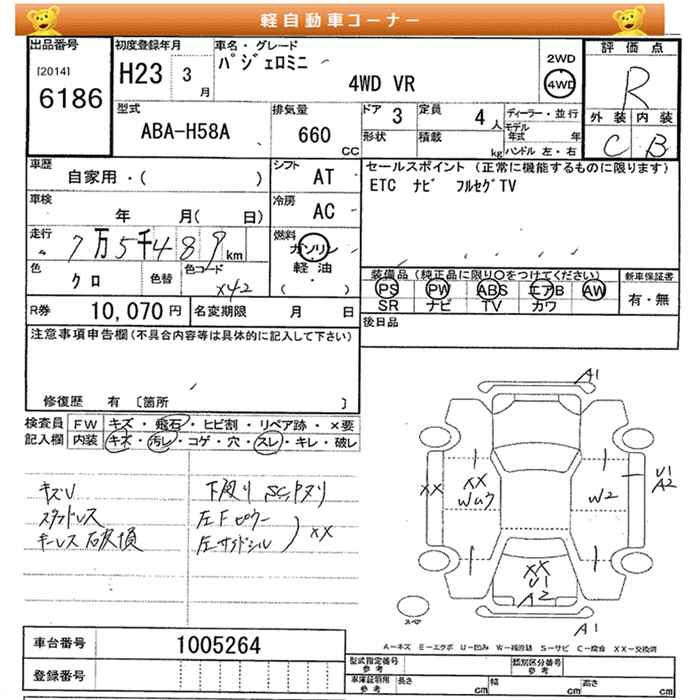 軽自動車コーナー
出品番号
[2014]
6186
初度登録年月
H23 3月
車名・グレード
パジェロミニ
4WD VR
2WD
4WD
評価点
R
外装 内装
C B
型式
ABA-H58A
排気量
660 CC
ドア 3
定員 4人
形状
積載 kg
ディーラー・並行
モデル年式 年
ハンドル 左・右
車歴
自家用・( )
シフト AT
セールスポイント (正常に機能するものに限ります)
ETC ナビ フルセグTV
車検
年 月( 日)
冷房 AC
走行
7万5千489km
燃料
ガソリン
軽油
( ・ )
色
クロ
色替
色コード
X42
装備品 (純正品に限り〇をつけてください)
PS PW ABS エアB AW
SR ナビ TV カワ
新車保証書
有・無
R券 10,070円
名変期限 月 日
後日品
注意事項申告欄(不具合内容等は具体的に記入して下さい)
修復歴 有 [箇所 ]
検査員記入欄
FW キズ・飛石・ヒビ割・リペア跡・×要
内装 キズ・汚レ・コゲ・穴・スレ・キレ・破レ
キズU
スタッドレス
キーレス破損
下廻り SC,タヌリ
左Fピラー
左サイドシル
XX
A1
XX
XX
Wウ
W2
U1
A2
XX
U1
A2
スペア
A1
A=キズ E=エクボ U=凹み W=補修跡 S=サビ C=腐食 XX=交換済
車台番号 1005264
登録番号
型式指定番号 参考
類別区分番号 参考
車庫証明用 参考
長さ cm
幅 cm
高さ cm